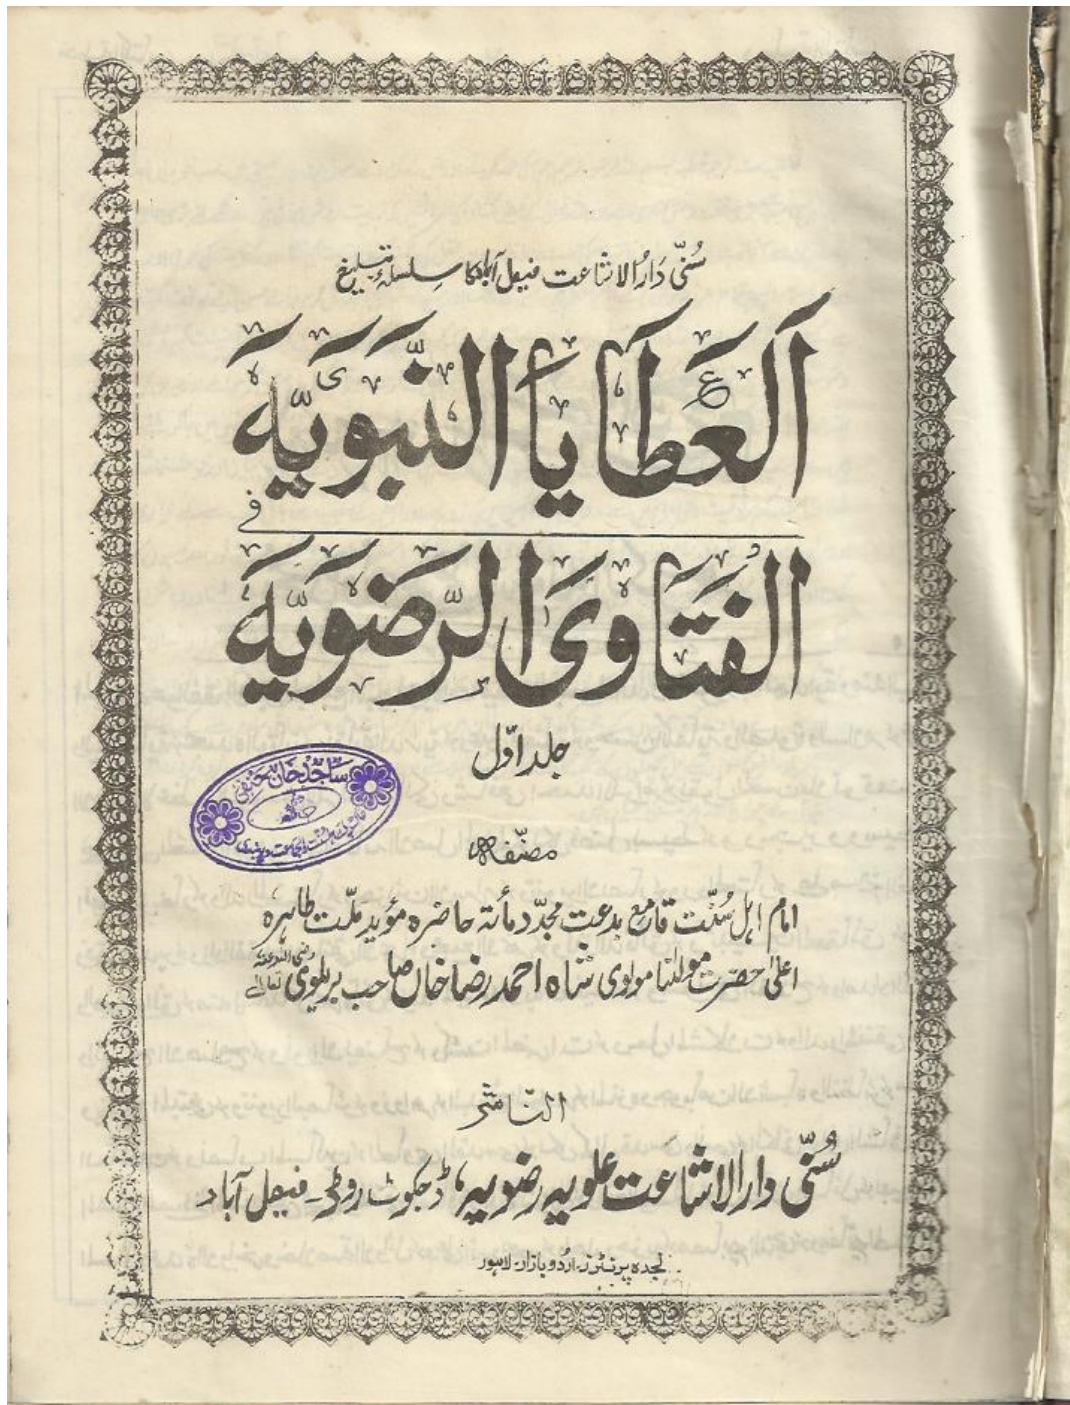 سُنّی دَارُالاشاعت فیصل آباد کا سلسلۂ تبلیغ
اَلعَطَایَا النَّبَوِیَّہ
فی
الفَتَاوَی الرَّضَوِیَّہ
جلد اوّل
ساجد خان حنفی
مصنفہ
امام اہل سُنّت قامع بدعت مجدّد مأتہ حاضرہ مؤید ملّت طاہرہ
اعلیٰ حضرت مولٰنا مولوی شاہ احمد رضا خاں صاحب بریلوی رضی اللہ تعالیٰ عنہ
النّاشر
سُنّی دارالاشاعت علویہ رضویہ، ڈجکوٹ روڈ۔ فیصل آباد
لجدہ پرنٹرز اردو بازار لاہور